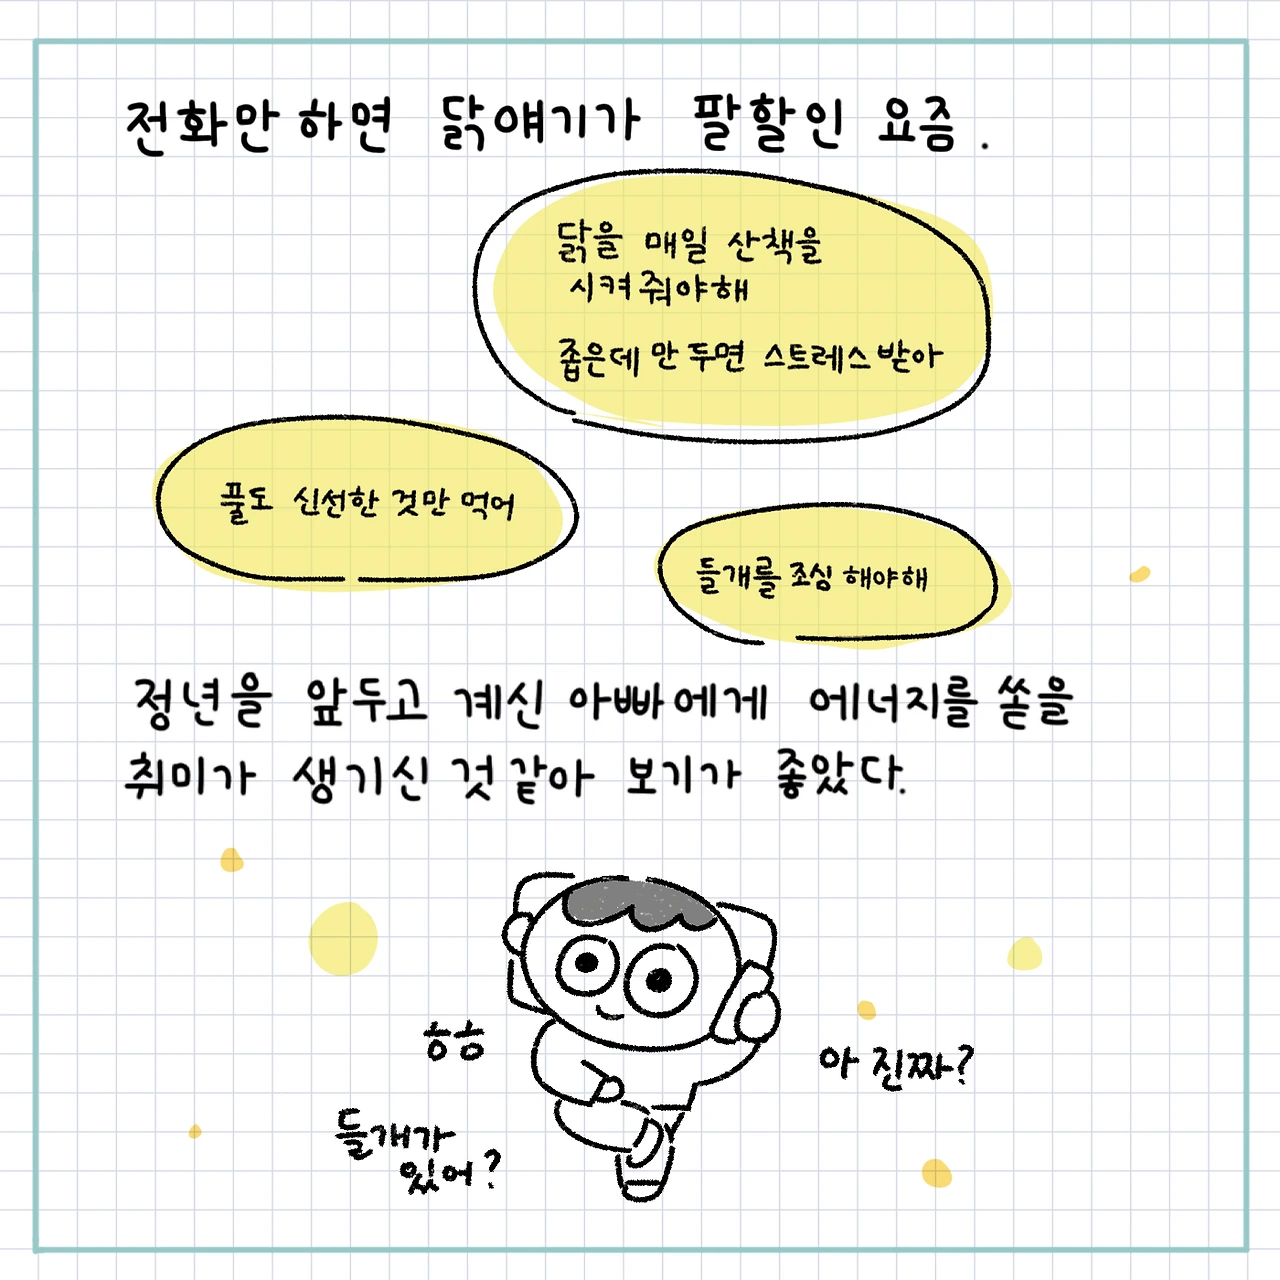 전화만 하면 닭얘기가 팔할인 요즘.
닭을 매일 산책을
시켜줘야해
좁은데만 두면 스트레스 받아
풀도 신선한 것만 먹어
들개를 조심 해야해
정년을 앞두고 계신 아빠에게 에너지를 쏟을
취미가 생기신 것 같아 보기가 좋았다.
ㅎㅎ
아 진짜?
들개가
있어?